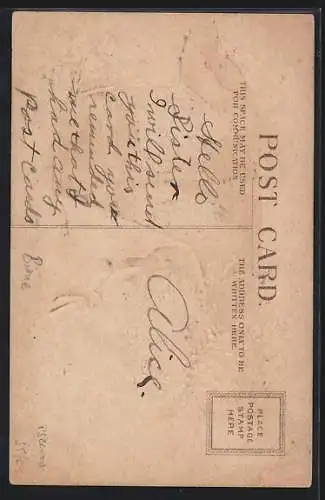 POST CARD.
THIS SPACE MAY BE USED
FOR COMMUNICATION
THE ADDRESS ONLY TO BE
WRITTEN HERE.
PLACE
POSTAGE
STAMP
HERE
Hello
Sister
I will send
you this
card you
reminded
me that I
had any
Post cards
Alice.